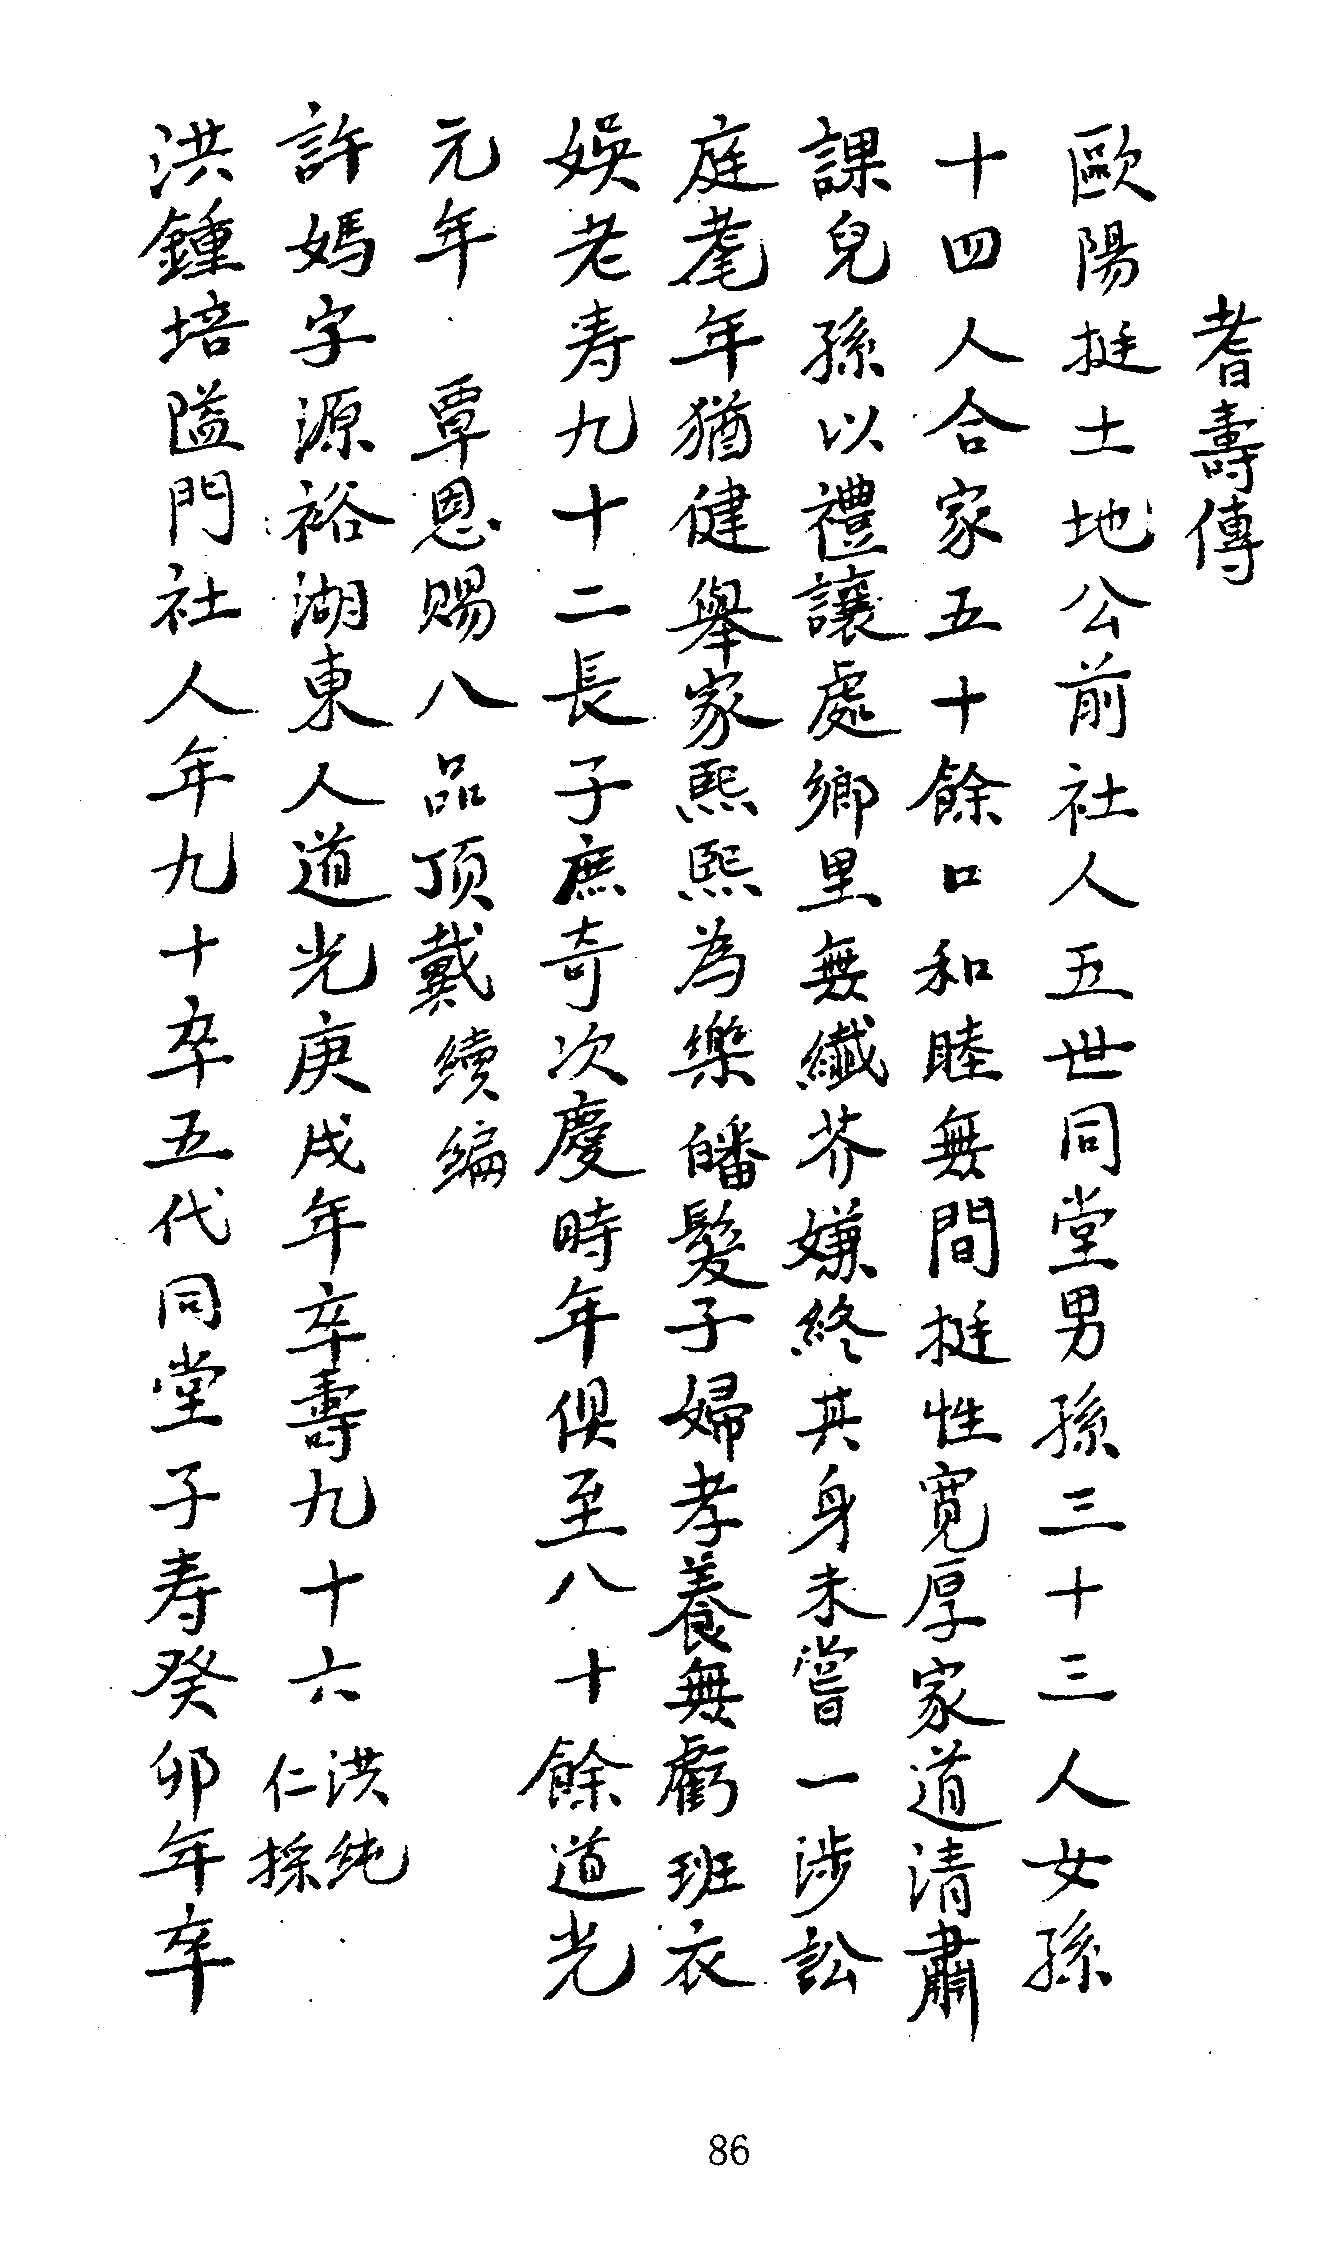 耆壽傳
歐陽挺土地公前社人五世同堂男孫三十三人女孫
十四人合家五十餘口和睦無間挺性寬厚家道清肅
課兒孫以禮讓處鄉里無纖芥嫌終其身未嘗一涉訟
庭耄年猶健舉家熙熙為樂皤髮子婦孝養無虧班衣
娛老寿九十二長子庶奇次慶時年俱至八十餘道光
元年　覃恩賜八品頂戴續編
許媽字源裕湖東人道光庚戌年卒壽九十六洪純仁採
洪鍾培隘門社人年九十卒五代同堂子寿癸卯年卒
86